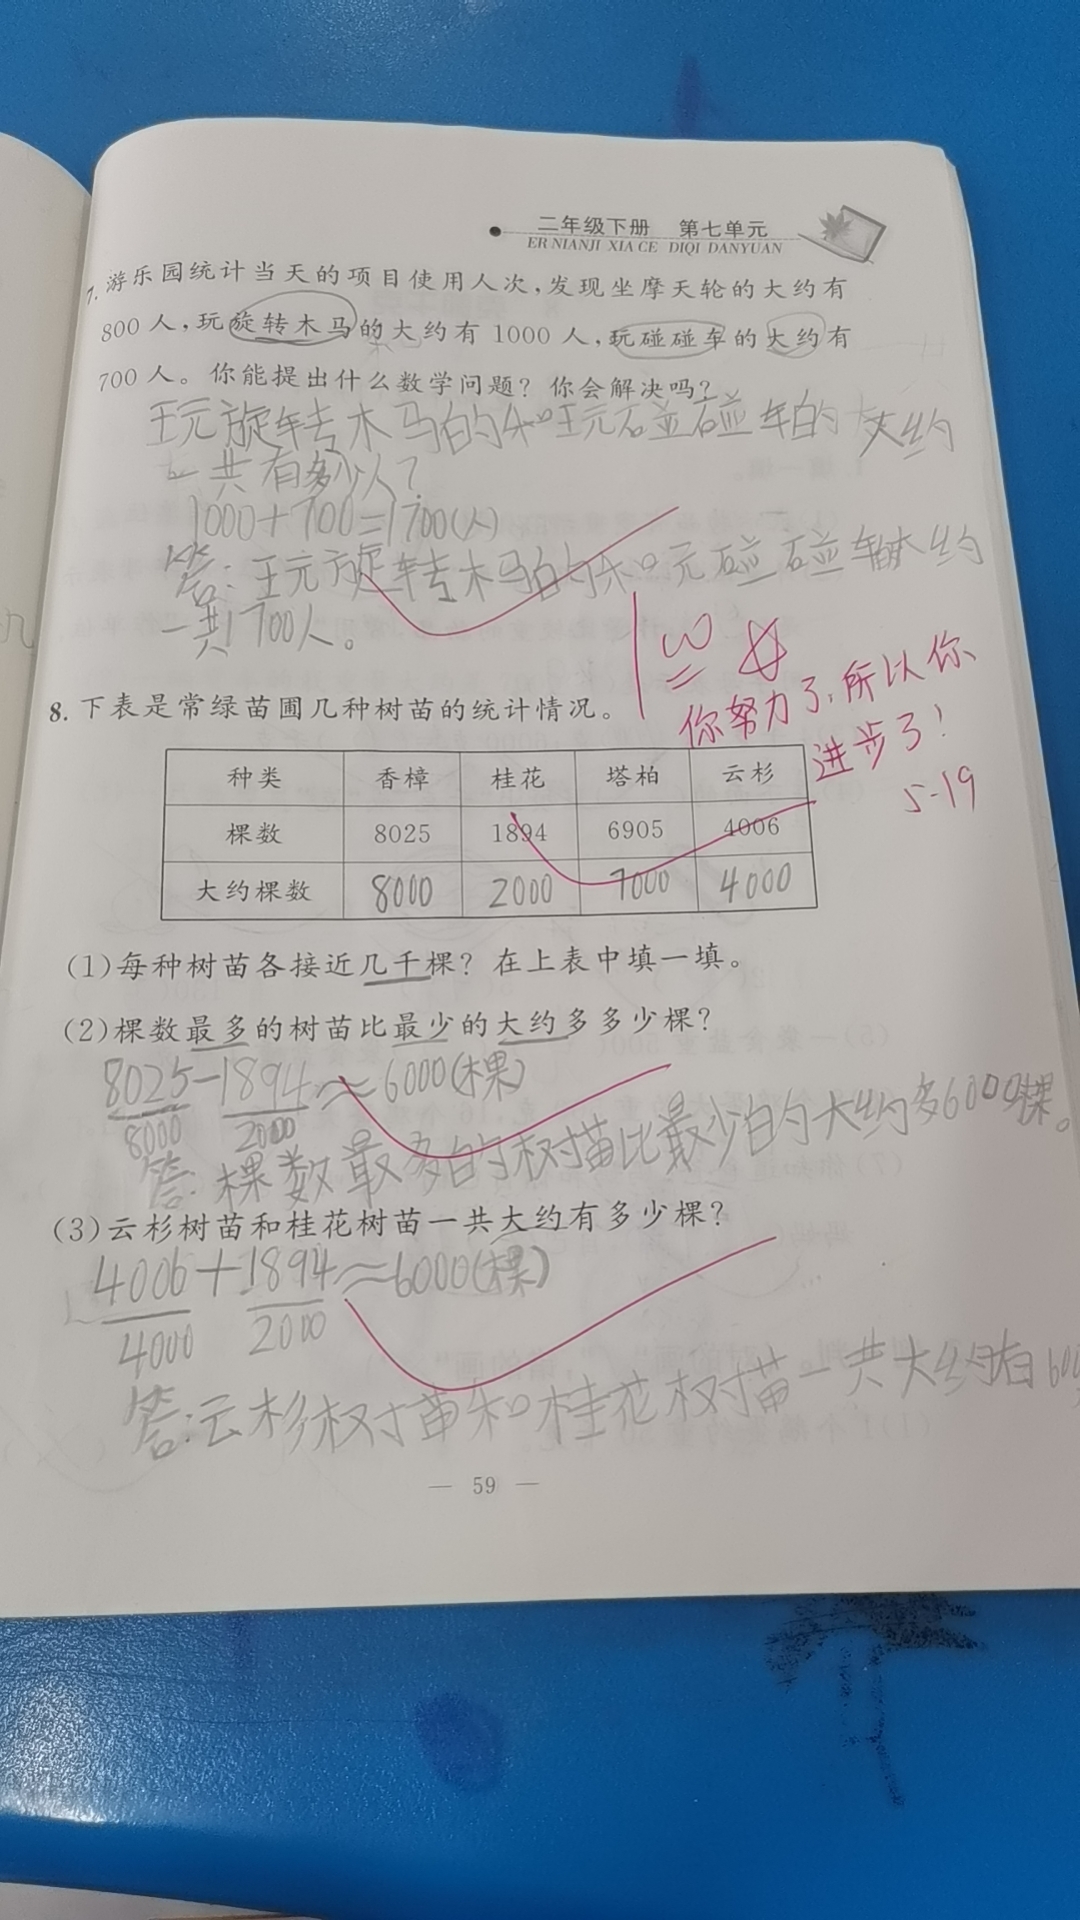 二年级下册 第七单元
ER NIANJI XIA CE DIQI DANYUAN
7. 游乐园统计当天的项目使用人次,发现坐摩天轮的大约有
800人,玩旋转木马的大约有1000人,玩碰碰车的大约有
700人。你能提出什么数学问题？你会解决吗？
玩旋转木马的和玩碰碰车的大约
一共有多少人？
1000+700=1700(人)
答:玩旋转木马的和玩碰碰车大约
一共1700人。
100
你努力了,所以你
进步了!
5-19
8. 下表是常绿苗圃几种树苗的统计情况。
种类 香樟 桂花 塔柏 云杉
棵数 8025 1894 6905 4006
大约棵数 8000 2000 7000 4000
(1)每种树苗各接近几千棵？在上表中填一填。
(2)棵数最多的树苗比最少的大约多多少棵？
8025-1894≈6000(棵)
8000 2000
答:棵数最多的树苗比最少的大约多6000棵。
(3)云杉树苗和桂花树苗一共大约有多少棵？
4006+1894≈6000(棵)
4000 2000
答:云杉树苗和桂花树苗一共大约有600
— 59 —